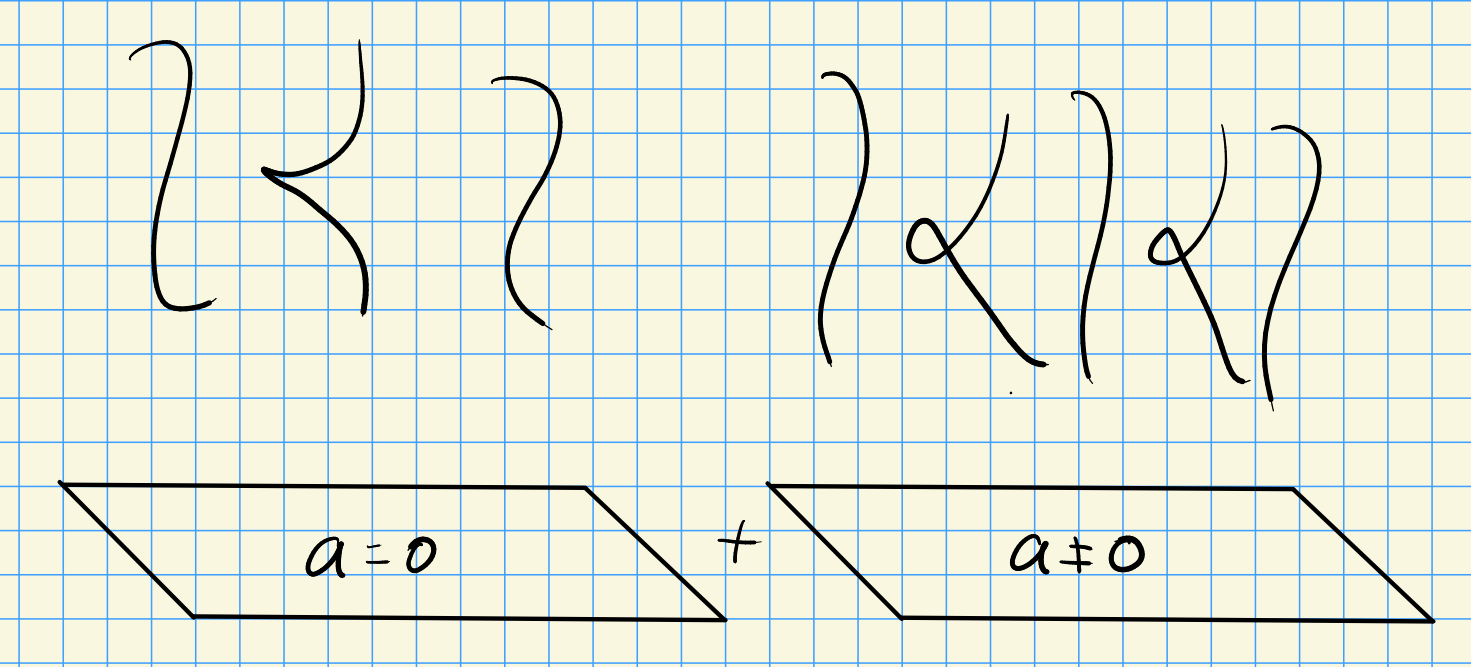 a = 0 + a ≠ 0